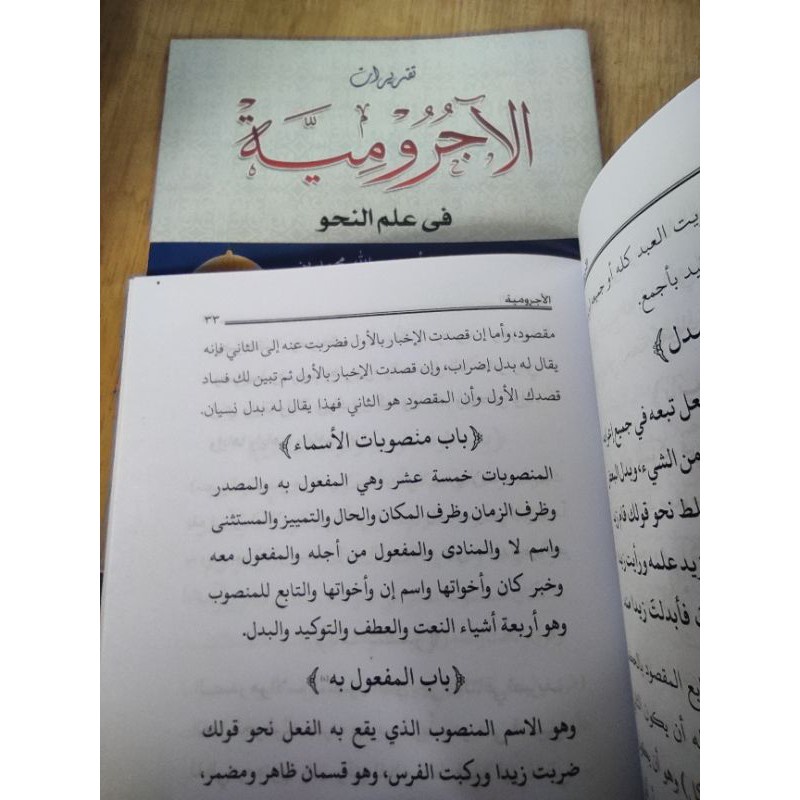 تقريرات
الآجُرُومِيَّة
فى علم النحو
الأجرومية
٣٣
مقصود، وأما إن قصدت الإخبار بالأول فضربت عنه إلى الثاني فإنه
يقال له بدل إضراب، وإن قصدت الإخبار بالأول ثم تبين لك فساد
قصدك الأول وأن المقصود هو الثاني فهذا يقال له بدل نسيان.
﴿باب منصوبات الأسماء﴾
المنصوبات خمسة عشر وهي المفعول به والمصدر
وظرف الزمان وظرف المكان والحال والتمييز والمستثنى
واسم لا والمنادى والمفعول من أجله والمفعول معه
وخبر كان وأخواتها واسم إن وأخواتها والتابع للمنصوب
وهو أربعة أشياء النعت والعطف والتوكيد والبدل.
﴿باب المفعول به﴾
وهو الاسم المنصوب الذي يقع به الفعل نحو قولك
ضربت زيدا وركبت الفرس، وهو قسمان ظاهر ومضمر،
يت العبد كله أو
بأجمع.
تبعه في جميع
من الشيء، وبدل
نحو قولك قام
زيد علمه ورأيت
فأبدلت زيدا
المقصود
أن يكون